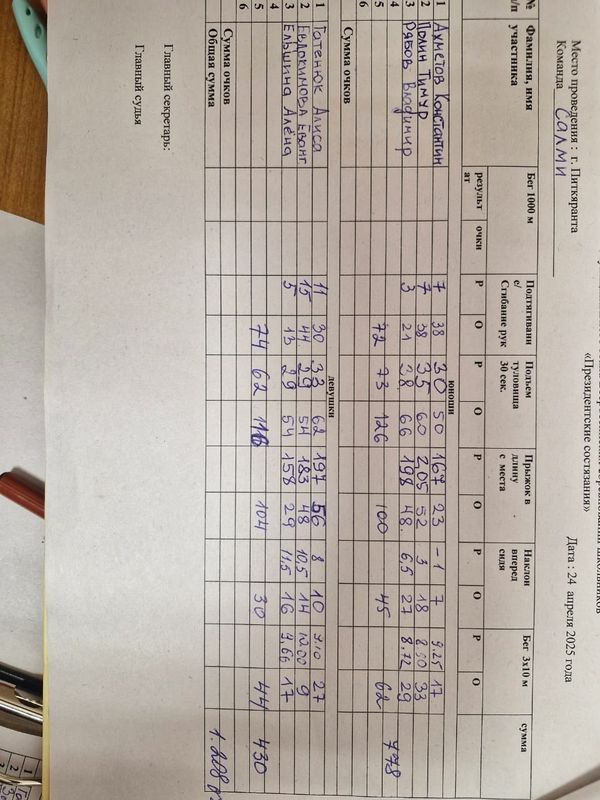 соревнований школьников
«Президентские состязания»
Место проведения : г. Питкяранта Дата : 24 апреля 2025 года
Команда Салми
№ п/п Фамилия, имя участника Бег 1000 м Подтягивание/ Сгибание рук Подъем туловища 30 сек. Прыжок в длину с места Наклон вперед сидя Бег 3х10 м сумма
результат очки Р О Р О Р О Р О Р О
юноши
1 Ахметов Константин 7 38 30 50 167 23 -1 7 9.25 17
2 Полин Тимур 7 38 35 60 205 52 3 18 8.50 33
3 Рябов Владимир 3 21 38 66 198 48 6,5 27 8.72 29
4 778
5 72 73 126 100 45 62
6
Сумма очков
девушки
1 Гатенюк Алиса 11 30 33 62 197 56 8 10 9.10 27
2 Евдокимова Еванг 15 44 29 54 183 48 10,5 14 10.00 9
3 Ельшина Алёна 5 13 29 54 158 29 11,5 16 9.66 17
4
5 74 62 116 104 30 44 430
6
Сумма очков
Общая сумма 1.208
Главный секретарь:
Главный судья